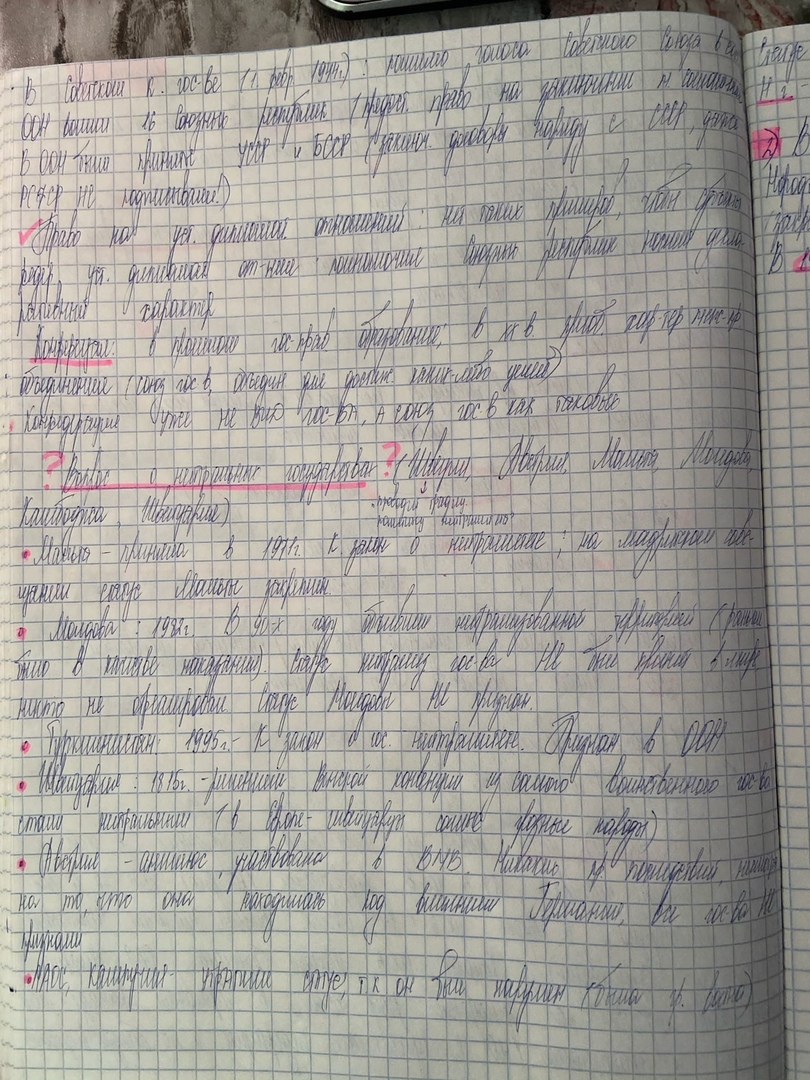 В Советском к. гос-ве (1 февр 1944г.): помимо голоса Советского Союза в
ООН вошли 16 Союзных республик (предост. право на заключение м
В ООН были приняты УССР и БССР (заключ. договоры наряду с СССР, даже
РСФСР НЕ подписывала!)
Право на уст. дипломат. отношений: нет таких примеров, чтобы субъекты
федер. уст. дипломат от-ния: полномочие Союзных республик носили декла-
ративный характер
Конфедерация: в прошлом гос-прав образование; в XX в. приоб. хар-тер
объединения (союз гос-в, объедин для достиж. каких-либо целей)
Конфедерация уже не ВИД гос-ВА, А союз гос-в как таковых
? Вопрос о нейтральных государствах ? (Швеция, Австрия, Мальта, Молдова
Камбоджа, Швейцария)
проводит традиц.
политику нейтралитета
• Мальта – приняла в к. закон о нейтралитете; на мадридском сове-
щании статус Мальты закреплен.
• Молдова: В 90-х году объявила нейтрализованной территорией (раньше
было в качестве наказания). Статус нейтрализ гос-ва НЕ был принят в мире
никто не отреагировал. Статус Молдовы НЕ признан.
• Туркменистан: 1995г.- К закон о пс. нейтралитете. Признан в ООН
• Швейцария: 1815г. -решением Венской конвенции из самого воинственного гос-ва
стали нейтральным (в Европе- швейцарцы самые грозные народы)
• Австрия - аншлюс, участвовала в ВМВ. Никаких последствий,
на то, что она находилась под влиянием Германии, все гос-ва НЕ
признали
• ЛАОС, Кампучия- утратили статус, т.к он был нарушен (была гр. война)